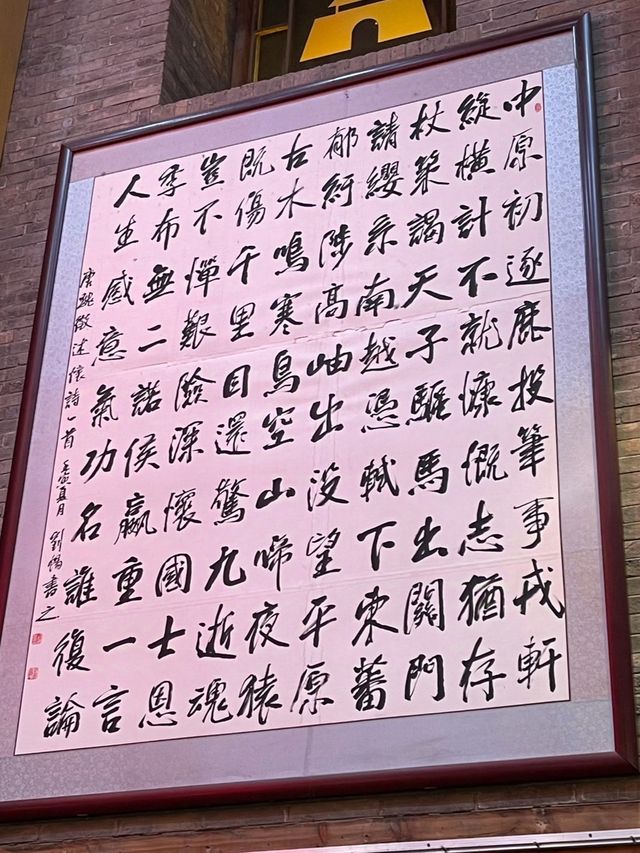 中原初逐鹿投筆事戎軒
縱橫計不就慷慨志猶存
杖策謁天子驅馬出關門
請纓系南越憑軾下東蕃
郁紆陟高岫出沒望平原
古木鳴寒鳥空山啼夜猿
既傷千里目還驚九逝魂
豈不憚艱險深懷國士恩
季布無二諾侯嬴重一言
人生感意氣功名誰復論
唐魏徵述懷詩一首 壬寅夏月 劉書之